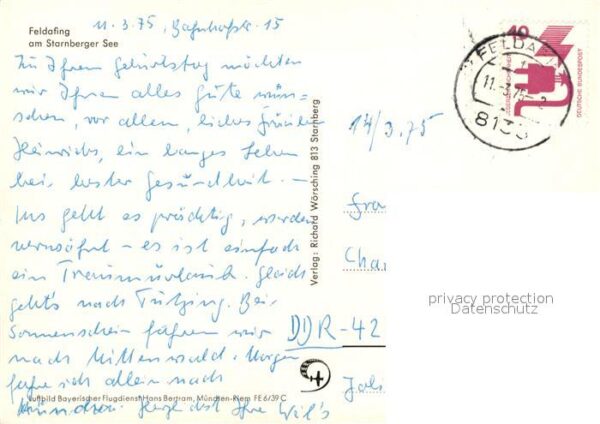 11.3.75, Bahnhofstr. 15
Feldafing
am Starnberger See
Zu Ihrem Geburtstag möchten
wir Ihnen alles Gute wün-
schen, vor allem, liebes Fräulein
Heinrichs, ein langes Leben
bei bester Gesundheit. –
Uns geht es prächtig, werden
verwöhnt – es ist einfach
ein Traumurlaub. Gleich
geht's nach Tutzing. Bei
Sonnenschein fahren wir
nach Mittenwald. Morgen
fahre ich allein nach
München. Herzlichst Ihre
Luftbild Bayerischer Flugdienst Hans Bertram, München-Riem FE 6/39 C
Verlag: Richard Wörsching 813 Starnberg
40
DEUTSCHE BUNDESPOST
FELDAFING
11.-3.75
813
14/3.75
Fra
Cha
privacy protection
Datenschutz
DDR-42